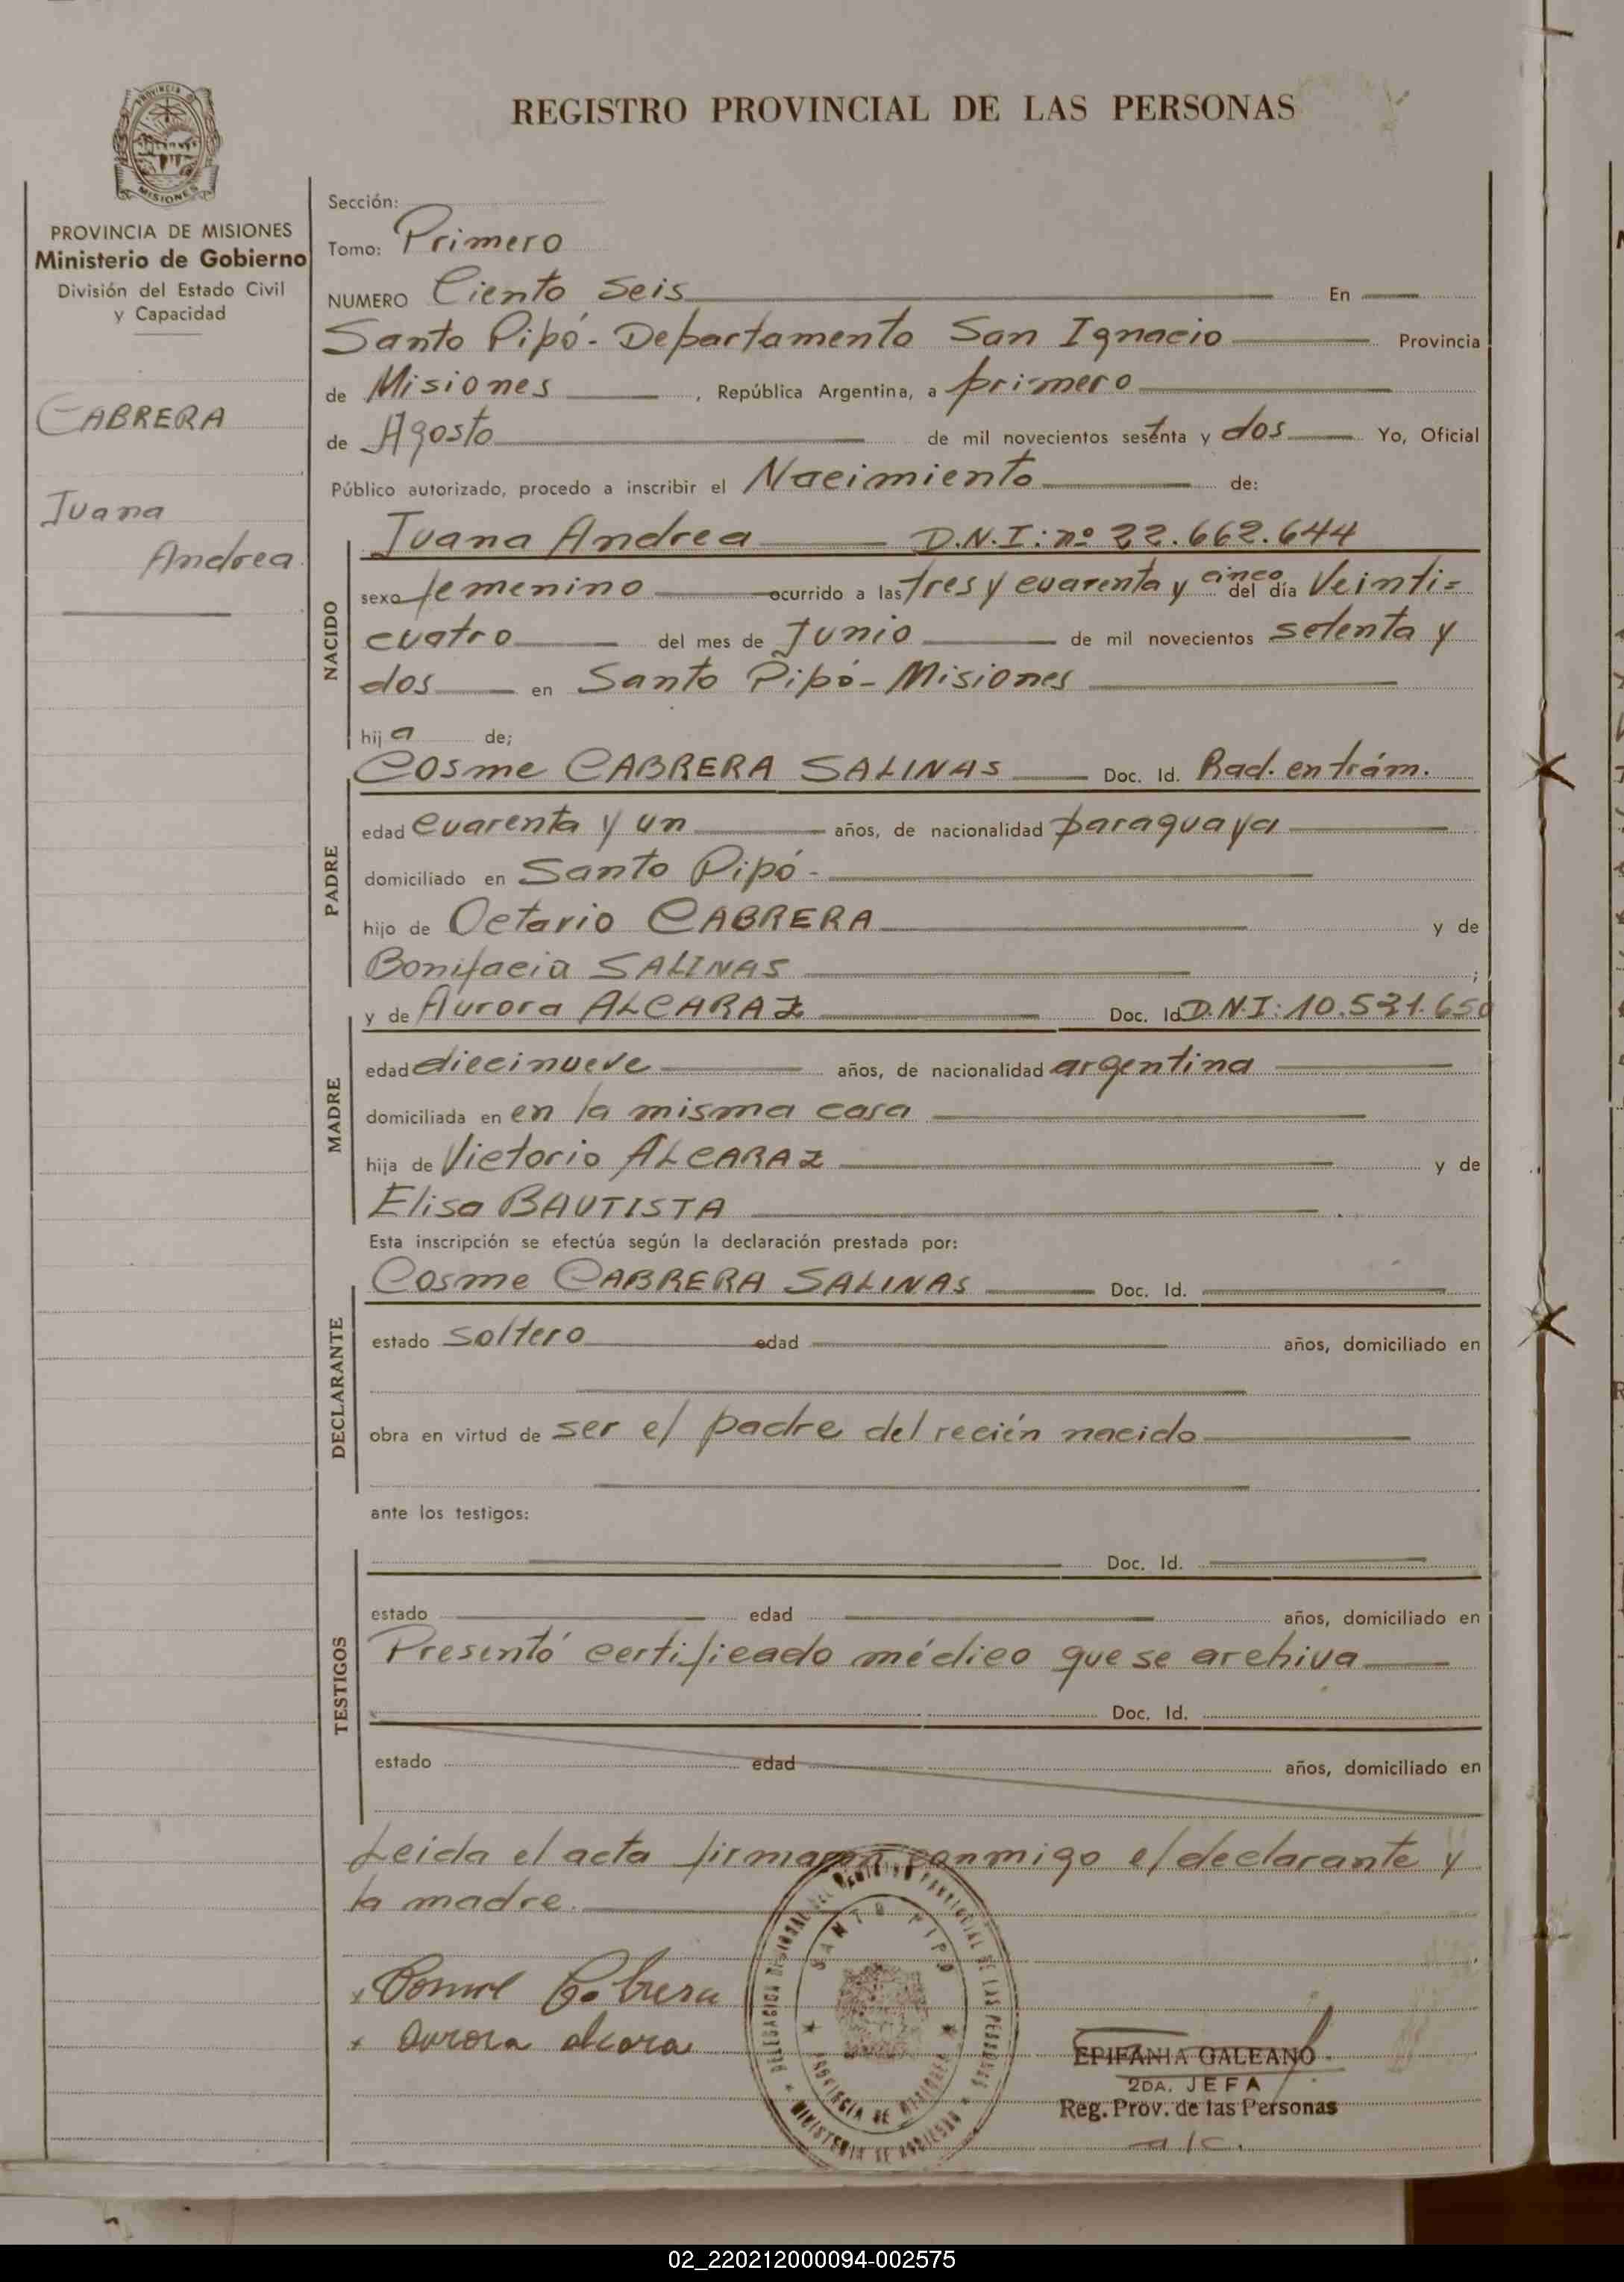 REGISTRO PROVINCIAL DE LAS PERSONAS
MISIONES
PROVINCIA DE MISIONES
Ministerio de Gobierno
División del Estado Civil
y Capacidad
CABRERA
Juana
Andrea
Sección:
Tomo: Primero
NUMERO Ciento seis En
Santo Pipó - Departamento San Ignacio Provincia
de Misiones , República Argentina, a primero
de Agosto de mil novecientos sesenta y dos Yo, Oficial
Público autorizado, procedo a inscribir el Nacimiento de:
Juana Andrea D.N.I: nº 22.662.644
NACIDO
sexo femenino ocurrido a las tres y cuarenta y cinco del día Veinti=
cuatro del mes de Junio de mil novecientos setenta y
dos en Santo Pipó - Misiones
hija de;
Cosme CABRERA SALINAS Doc. Id. Rad. en trám.
PADRE
edad cuarenta y un años, de nacionalidad paraguaya
domiciliado en Santo Pipó -
hijo de Octavio CABRERA y de
Bonifacia SALINAS ;
y de Aurora ALCARAZ Doc. Id D.N.I: 10.521.650
MADRE
edad diecinueve años, de nacionalidad argentina
domiciliada en en la misma casa
hija de Victorio ALCARAZ y de
Elisa BAUTISTA .
Esta inscripción se efectúa según la declaración prestada por:
Cosme CABRERA SALINAS Doc. Id.
DECLARANTE
estado soltero edad años, domiciliado en
obra en virtud de ser el padre del recién nacido
ante los testigos:
Doc. Id.
TESTIGOS
estado edad años, domiciliado en
Presentó certificado médico que se archiva
Doc. Id.
estado edad años, domiciliado en
Leida el acta firman conmigo el declarante y
la madre.
x Cosme Cabrera
x Aurora alcara
SANTO PIPO
DELEGACION REGIONAL DEL REGISTRO PROVINCIAL DE LAS PERSONAS
PROVINCIA DE MISIONES
MINISTERIO DE GOBIERNO
EPIFANIA GALEANO
2DA. JEFA
Reg. Prov. de las Personas
a/c.
02_220212000094-002575